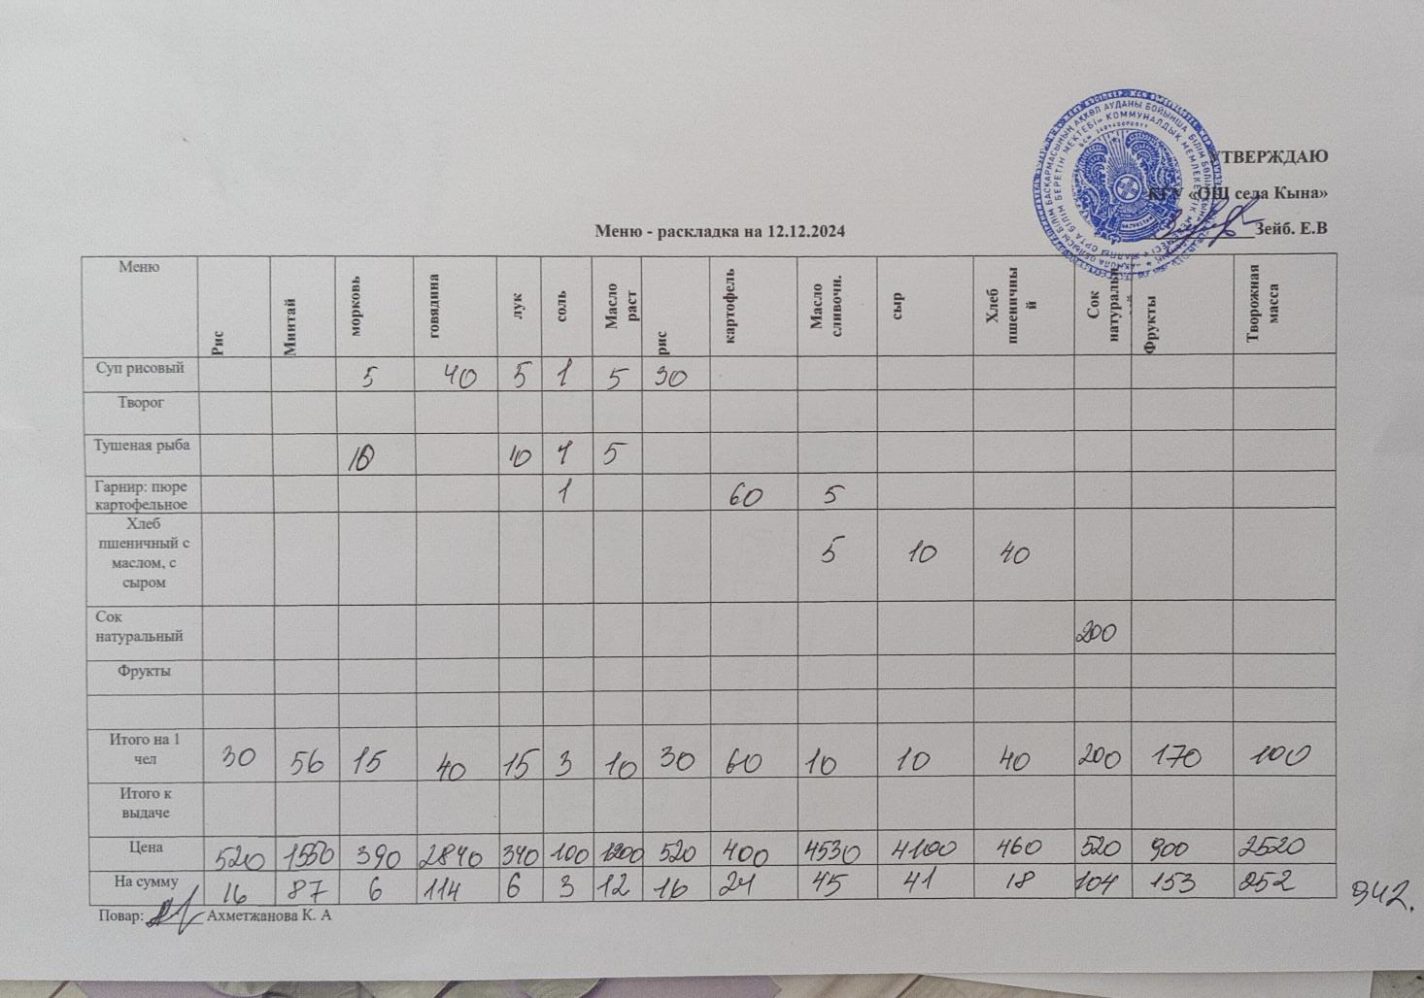 УТВЕРЖДАЮ
КГУ «ОШ села Кына»
Зейб. Е.В
Меню - раскладка на 12.12.2024
Меню Рис Минтай морковь говядина лук соль Масло раст рис картофель Масло сливочн. сыр Хлеб пшеничны й Сок натуральн Фрукты Творожная масса
Суп рисовый 5 40 5 1 5 30
Творог
Тушеная рыба 10 10 1 5
Гарнир: пюре 1 60 5
картофельное
Хлеб
пшеничный с 5 10 40
маслом, с
сыром
Сок
натуральный 200
Фрукты
Итого на 1 30 56 15 40 15 3 10 30 60 10 10 40 200 170 100
чел
Итого к
выдаче
Цена 520 1550 390 2840 340 100 1200 520 400 4530 4100 460 520 900 2520
На сумму 16 87 6 114 6 3 12 16 24 45 41 18 104 153 252 942.
Повар: Ахметжанова К. А